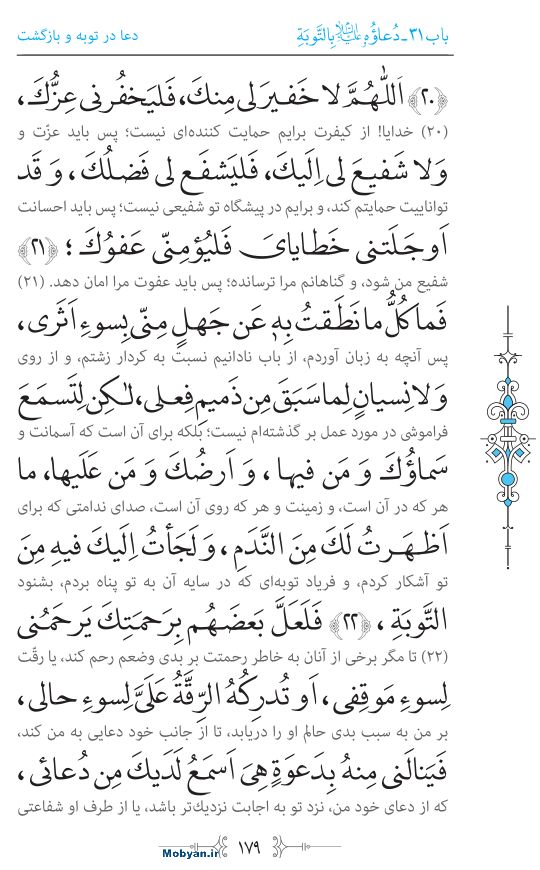 باب ۳۱ - دُعاؤُهُ عليه السلام بِالتَّوبَةِ
دعا در توبه و بازگشت
﴿۲۰﴾ اَللّٰهُمَّ لا خَفیرَ لی مِنكَ، فَلیَخفُرنی عِزُّكَ،
(۲۰) خدایا! از کیفرت برایم حمایت کننده‌ای نیست؛ پس باید عزّت و
وَلا شَفیعَ لی اِلَیكَ، فَلیَشفَع لی فَضلُكَ، وَ قَد
تواناییت حمایتم کند، و برایم در پیشگاه تو شفیعی نیست؛ پس باید احسانت
اَوجَلَتنی خَطایایَ فَلیُؤمِنّی عَفوُكَ ؛ ﴿۲۱﴾
شفیع من شود، و گناهانم مرا ترسانده؛ پس باید عفوت مرا امان دهد. (۲۱)
فَما كُلُّ ما نَطَقتُ بِهٖ عَن جَهلٍ مِنّی بِسوءِ اَثَری،
پس آنچه به زبان آوردم، از باب نادانیم نسبت به کردار زشتم، و از روی
وَلا نِسیانٍ لِما سَبَقَ مِن ذَمیمِ فِعلی، لٰـكِن لِتَسمَعَ
فراموشی در مورد عمل بر گذشته‌ام نیست؛ بلکه برای آن است که آسمانت و
سَماؤُكَ وَ مَن فیها ، وَ اَرضُكَ وَ مَن عَلَیها، ما
هر که در آن است، و زمینت و هر که روی آن است، صدای ندامتی که برای
اَظهَرتُ لَكَ مِنَ النَّدَمِ ، وَ لَجَأتُ اِلَیكَ فیهِ مِنَ
تو آشکار کردم، و فریاد توبه‌ای که در سایه آن به تو پناه بردم، بشنود
التَّوبَةِ ، ﴿۲۲﴾ فَلَعَلَّ بَعضَهُم بِرَحمَتِكَ یَرحَمُنی
(۲۲) تا مگر برخی از آنان به خاطر رحمتت بر بدی وضعم رحم کند، یا رقّت
لِسوءِ مَوقِفی، اَو تُدرِكُهُ الرِّقَّةُ عَلَیَّ لِسوءِ حالی ،
بر من به سبب بدی حالم او را دریابد، تا از جانب خود دعایی به من کند،
فَیَنالَنی مِنهُ بِدَعوَةٍ هِیَ اَسمَعُ لَدَیكَ مِن دُعائی ،
که از دعای خود من، نزد تو به اجابت نزدیك‌تر باشد، یا از طرف او شفاعتی
۱۷۹
Mobyan.ir